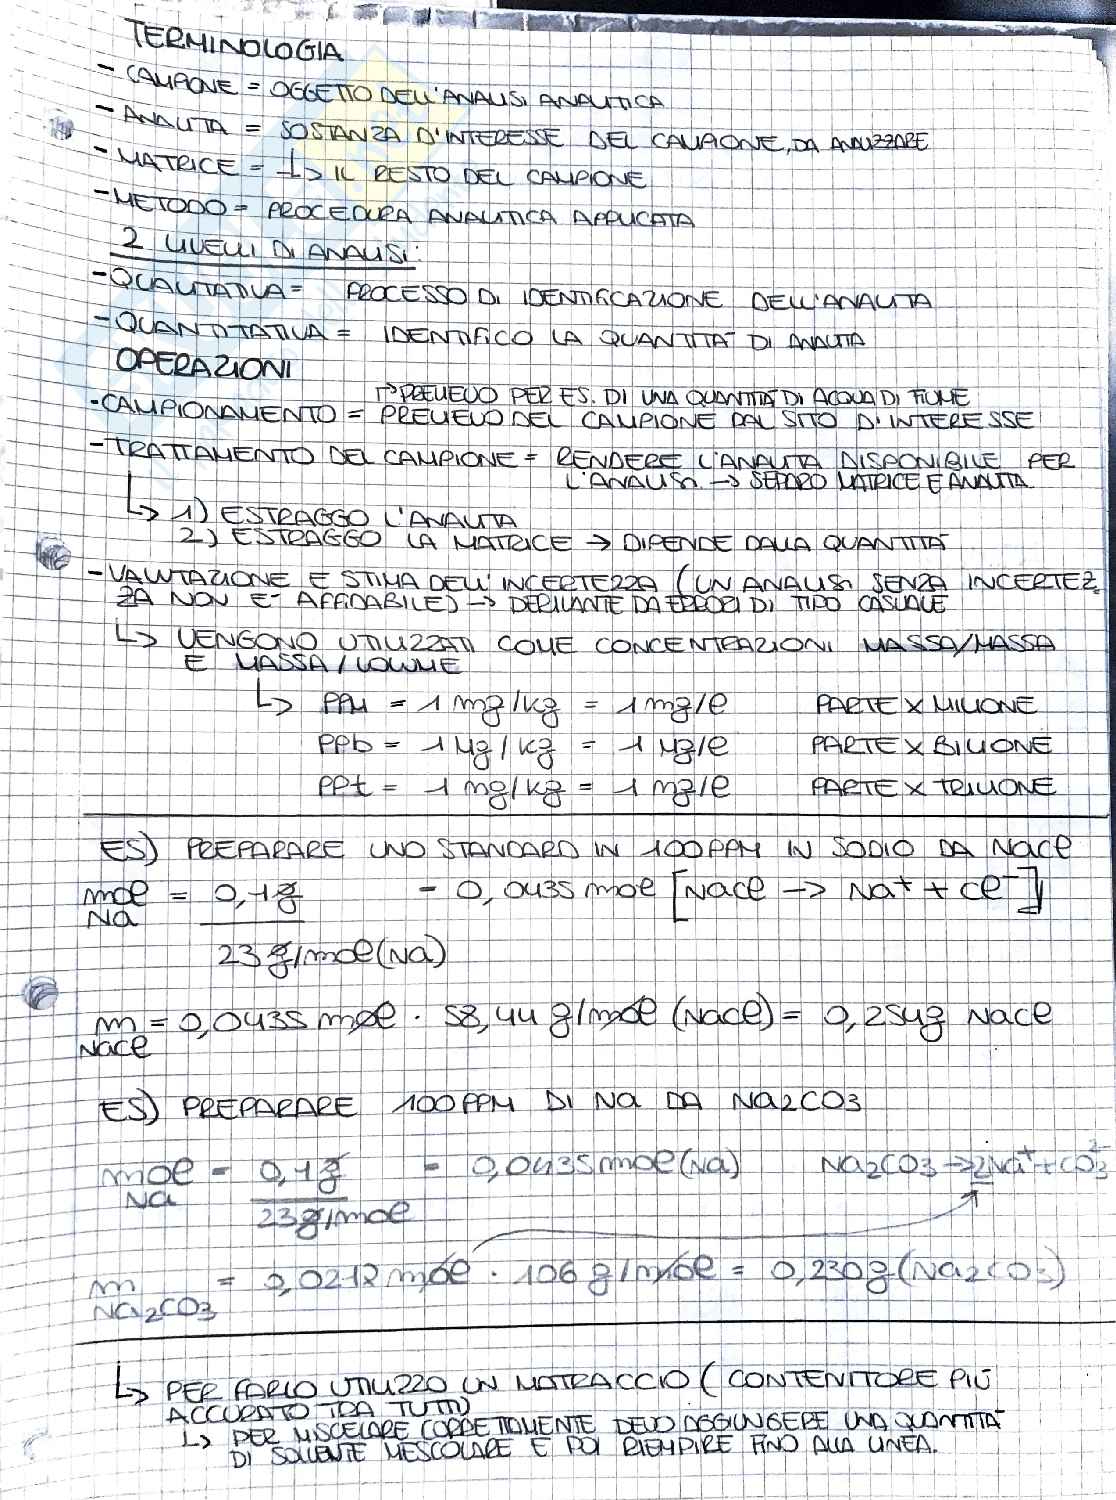 TERMINOLOGIA
- CAMPIONE = OGGETTO DELL'ANALISI ANALITICA
- ANALITA = SOSTANZA D'INTERESSE DEL CAMPIONE, DA ANALIZZARE
- MATRICE = ↳ IL RESTO DEL CAMPIONE
- METODO = PROCEDURA ANALITICA APPLICATA
2 LIVELLI DI ANALISI:
- QUALITATIVA = PROCESSO DI IDENTIFICAZIONE DELL'ANALITA
- QUANTITATIVA = IDENTIFICO LA QUANTITÀ DI ANALITA
OPERAZIONI
↱ PRELIEVO PER ES. DI UNA QUANTITÀ DI ACQUA DI FIUME
- CAMPIONAMENTO = PRELIEVO DEL CAMPIONE DAL SITO D'INTERESSE
- TRATTAMENTO DEL CAMPIONE = RENDERE L'ANALITA DISPONIBILE PER
L'ANALISI → SEPARO MATRICE E ANALITA
↳ 1) ESTRAGGO L'ANALITA
2) ESTRAGGO LA MATRICE → DIPENDE DALLA QUANTITÀ
- VALUTAZIONE E STIMA DELL'INCERTEZZA (UN ANALISI SENZA INCERTEZ
ZA NON E' AFFIDABILE) → DERIVANTE DA ERRORI DI TIPO CASUALE
↳ VENGONO UTILIZZATI COME CONCENTRAZIONI MASSA/MASSA
E MASSA/VOLUME
↳ PPM = 1 mg/kg = 1 mg/l PARTE X MILIONE
PPb = 1 μg/kg = 1 μg/l PARTE X BILIONE
PPt = 1 mg/kg = 1 mg/l PARTE X TRILIONE
ES) PREPARARE UNO STANDARD IN 100 PPM IN SODIO DA NaCl
mol Na = 0,1g / 23 g/mol (Na) = 0,0435 mol [NaCl → Na⁺ + Cl⁻]
m NaCl = 0,0435 mol · 58,44 g/mol (NaCl) = 0,254g NaCl
ES) PREPARARE 100 PPM DI Na DA Na2CO3
mol Na = 0,1g / 23g/mol = 0,0435 mol (Na) Na2CO3 → 2Na⁺ + CO3²⁻
m Na2CO3 = 0,0212 mol · 106 g/mol = 0,230g (Na2CO3)
↳ PER FARLO UTILIZZO UN MATRACCIO (CONTENITORE PIÙ
ACCURATO TRA TUTTI)
↳ PER MISCELARE CORRETTAMENTE DEVO AGGIUNGERE UNA QUANTITÀ
DI SOLVENTE MESCOLARE E POI RIEMPIRE FINO ALLA LINEA.